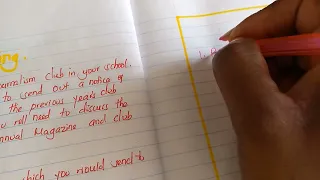 ing
journalism club in your school.
to send out a notice of
the previous years club
you will need to discuss the
nnual Magazine and club
which you would send to